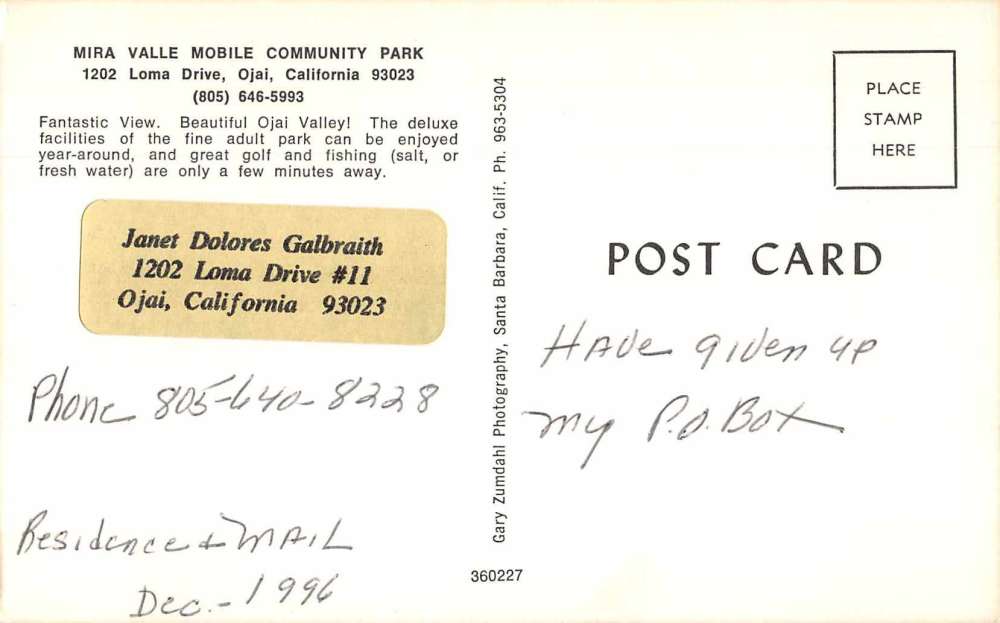 MIRA VALLE MOBILE COMMUNITY PARK
1202 Loma Drive, Ojai, California 93023
(805) 646-5993
Fantastic View. Beautiful Ojai Valley! The deluxe
facilities of the fine adult park can be enjoyed
year-around, and great golf and fishing (salt, or
fresh water) are only a few minutes away.
Janet Dolores Galbraith
1202 Loma Drive #11
Ojai, California 93023
Phone 805-640-8228
Residence & MAIL
Dec. - 1996
Gary Zumdahl Photography, Santa Barbara, Calif. Ph. 963-5304
360227
PLACE
STAMP
HERE
POST CARD
HAve given up
my P.O. Box